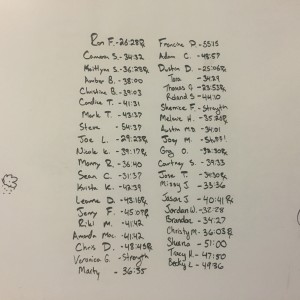 Ron F. - 26:28 Rx
Cameron S. - 34:32
Maitlynn S. - 36:28 Rx
Amber B. - 38:00
Christine B. - 39:03
Candice T. - 41:31
Mark T. - 43:37
Steve - 54:37
Joe L. - 29:23 Rx
Nicole K. - 39:17 Rx
Manny R. - 36:40
Sean C. - 31:37
Krista K. - 42:39
Leanne D. - 43:15 Rx
Jerry F. - 45:07 Rx
Riki M. - 41:42
Amanda Mac. - 41:42
Chris D. - 48:45 Rx
Veronica G. - Strength
Marty - 36:55
Francine D. - 55:15
Adam C. - 48:57
Dustin D. - 25:06 Rx
Tara - 34:29
Thomas G. - 23:53 Rx
Roland S. - 44:10
Sherrice F. - Strength
Melanie H. - 35:28
Austin MD. - 34:01
Joey M. - 56:59!
Greg O. - 32:30 Rx
Courtney S. - 39:33
Jose T. - 34:30 Rx
Missy J. - 33:36
Jason J. - 40:41 Rx
Jordan W. - 32:28
Brandon - 34:27
Christy M. - 36:03 Rx
Shauna - 51:00
Tracy H. - 47:50
Becky L. - 49:36